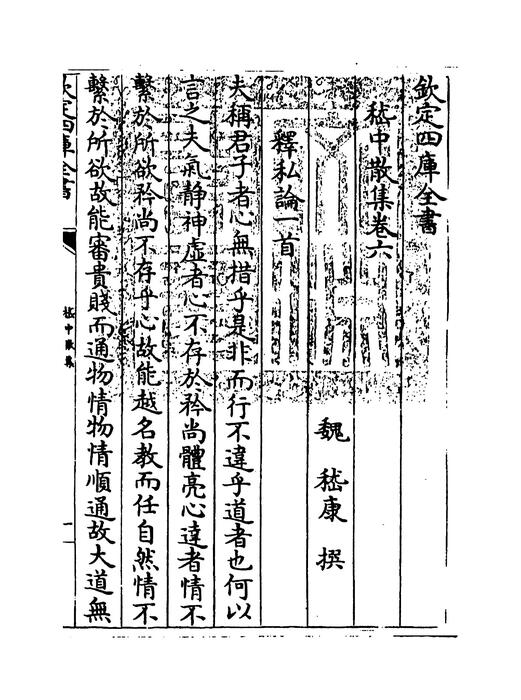 欽定四庫全書
嵇中散集卷六
魏 嵇康 撰
釋私論一首
夫稱君子者心無措乎是非而行不違乎道者也何以
言之夫氣静神虛者心不存於矜尚體亮心達者情不
繫於所欲矜尚不存乎心故能越名教而任自然情不
繫於所欲故能審貴賤而通物情物情順通故大道無
欽定四庫全書
嵇中散集
一